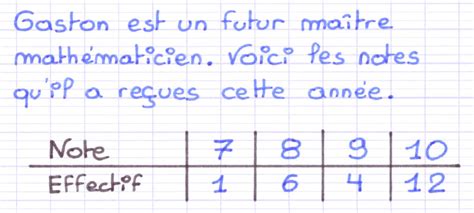 Gaston est un futur maître
mathématicien. Voici les notes
qu'il a reçues cette année.
Note 7 8 9 10
Effectif 1 6 4 12